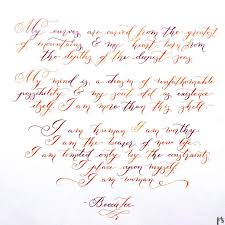 My curves are carved from the greatest
of mountains & my heart born from
the depths of the deepest seas.
My mind is a dream of unfathomable
possibility & my soul old as existence
itself. I am more than this shell.
I am human I am worthy
I am the bearer of new life
I am limited only by the constraints
I place upon myself
I am woman
Becca Lee